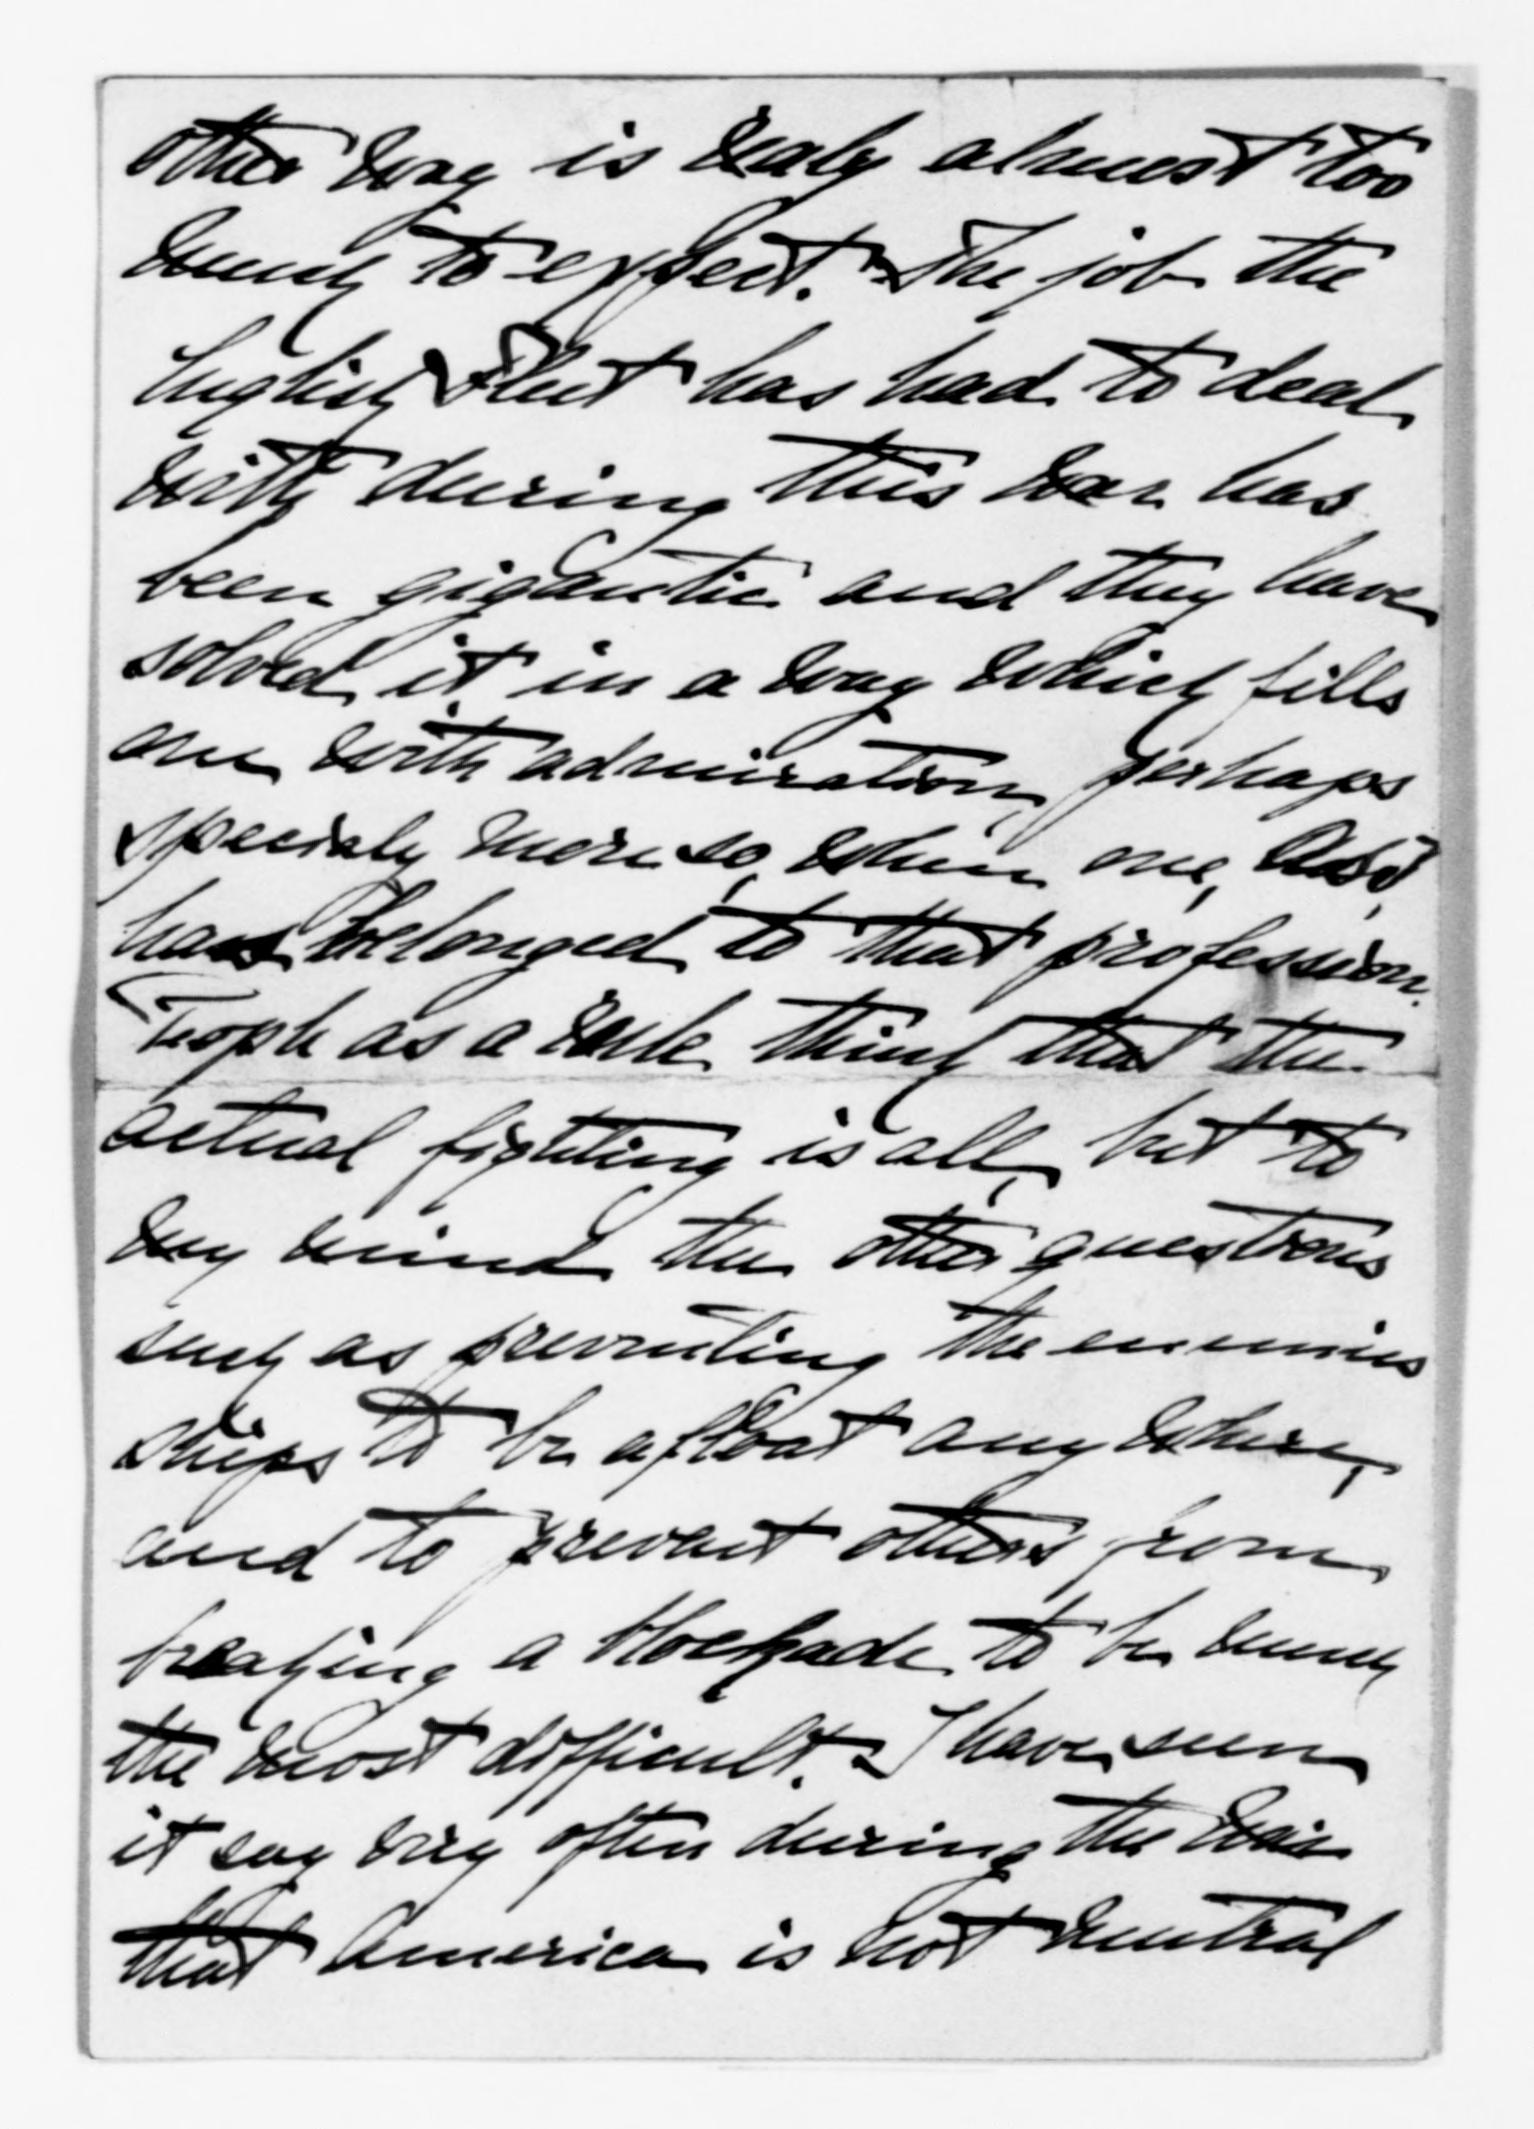 other way is realy almost too
much to expect. The job the
English Fleet has had to deal
with during this war has
been gigantic and they have
solved it in a way which fills
one with admiration, perhaps
specialy more so, when one,
has belonged to that profession.
People as a rule think that the
actual fighting is all, but to
my mind the other questions
such as preventing the enemies
ships to be afloat anywhere,
and to prevent others from
breaking a blockade to be much
the most difficult. I have seen
it say very often during the war
that America is not neutral